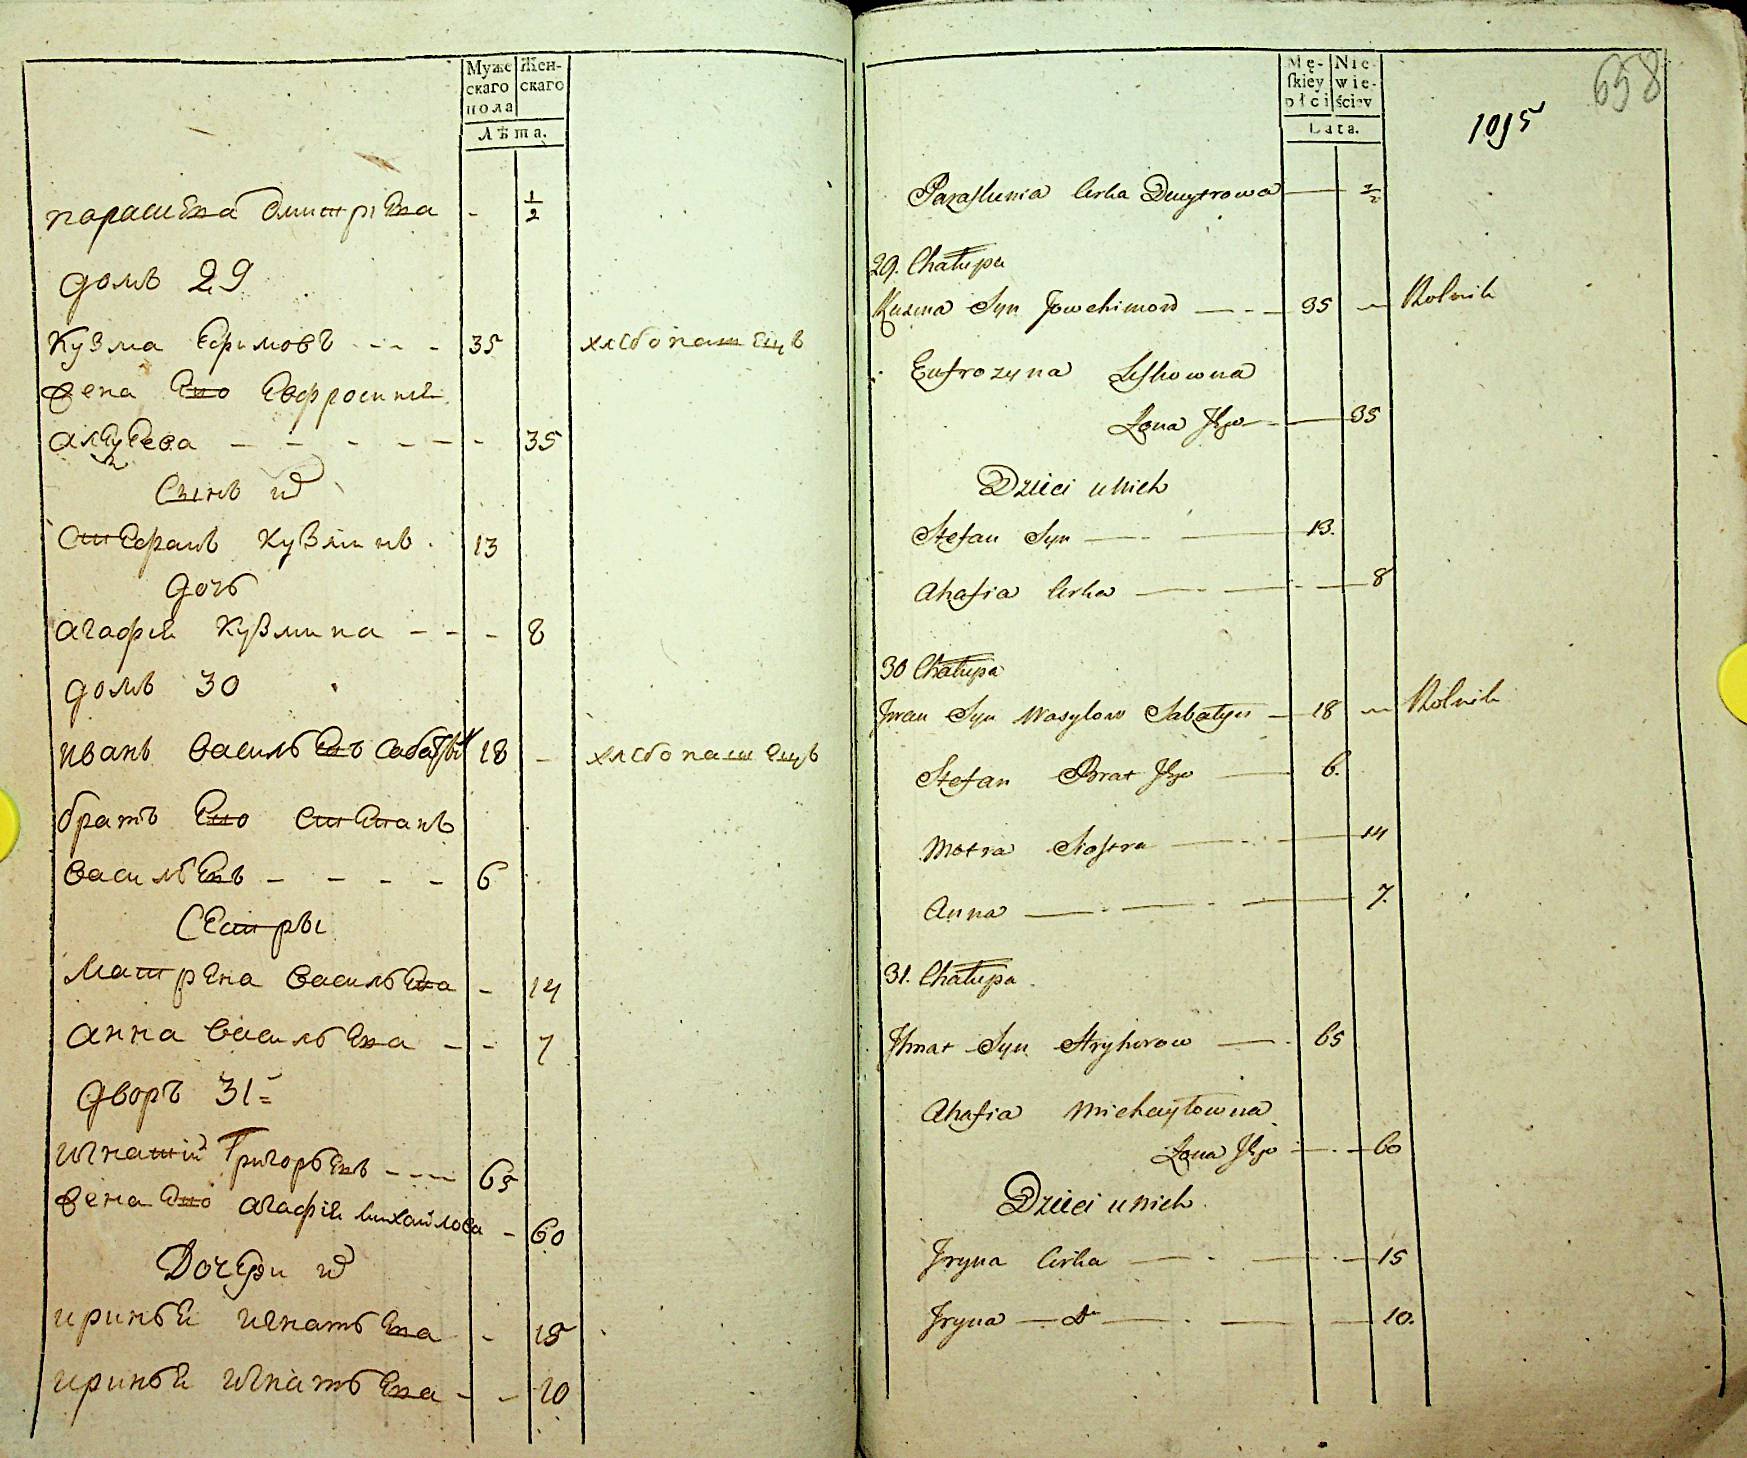 Муже
скаго
пола
Жен-
скаго
Лѣта.
парасковѣа дмитріева - 1/2
домъ 29
Кузма Ефимовъ - - - 35 хлебопашецъ
жена Ево Евфросиниѧ
- - - - - - 35
Сынъ их
Стефанъ Кузминъ 13
дочь
агафия Кузмина - - - 8
домъ 30
иванъ васильевъ сабатын 18 - хлебопашецъ
братъ Ево степанъ
васильевъ - - - - 6
Сестры
матрена васильева - 14
анна васильева - - 7
дворъ 31
игнатій Григорьевъ - - - - 65
жена Ево агафия михайлова - 60
Дочери их
иринья игнатьева - 15
иринья игнатьева - - 10
Mę-
skiey
płci
Nie
wie-
ściey
Lata.
658
1015
Paraskunia Corka Dmytrowa — 1/2
29. Chałupa
Kuzma Syn Jowchimow — - - 35 — Rolnik
Eufrozyna Leskowna
Zona Jego — 35
Dzieci u Nich
Stefan Syn — 13.
Ahafia Corka — 8
30 Chałupa
Jwan Syn Wasylow Sabatyn — 18 — Rolnik
Stefan Brat Jego — 6.
Motra Siostra — 14
Anna — 7.
31. Chałupa
Jhnat Syn Hryhorow — 65
Ahafia Michayłowna
Zona Jego — 60
Dzieci u Nich
Jryna Corka — 15
Jryna — dto — 10.